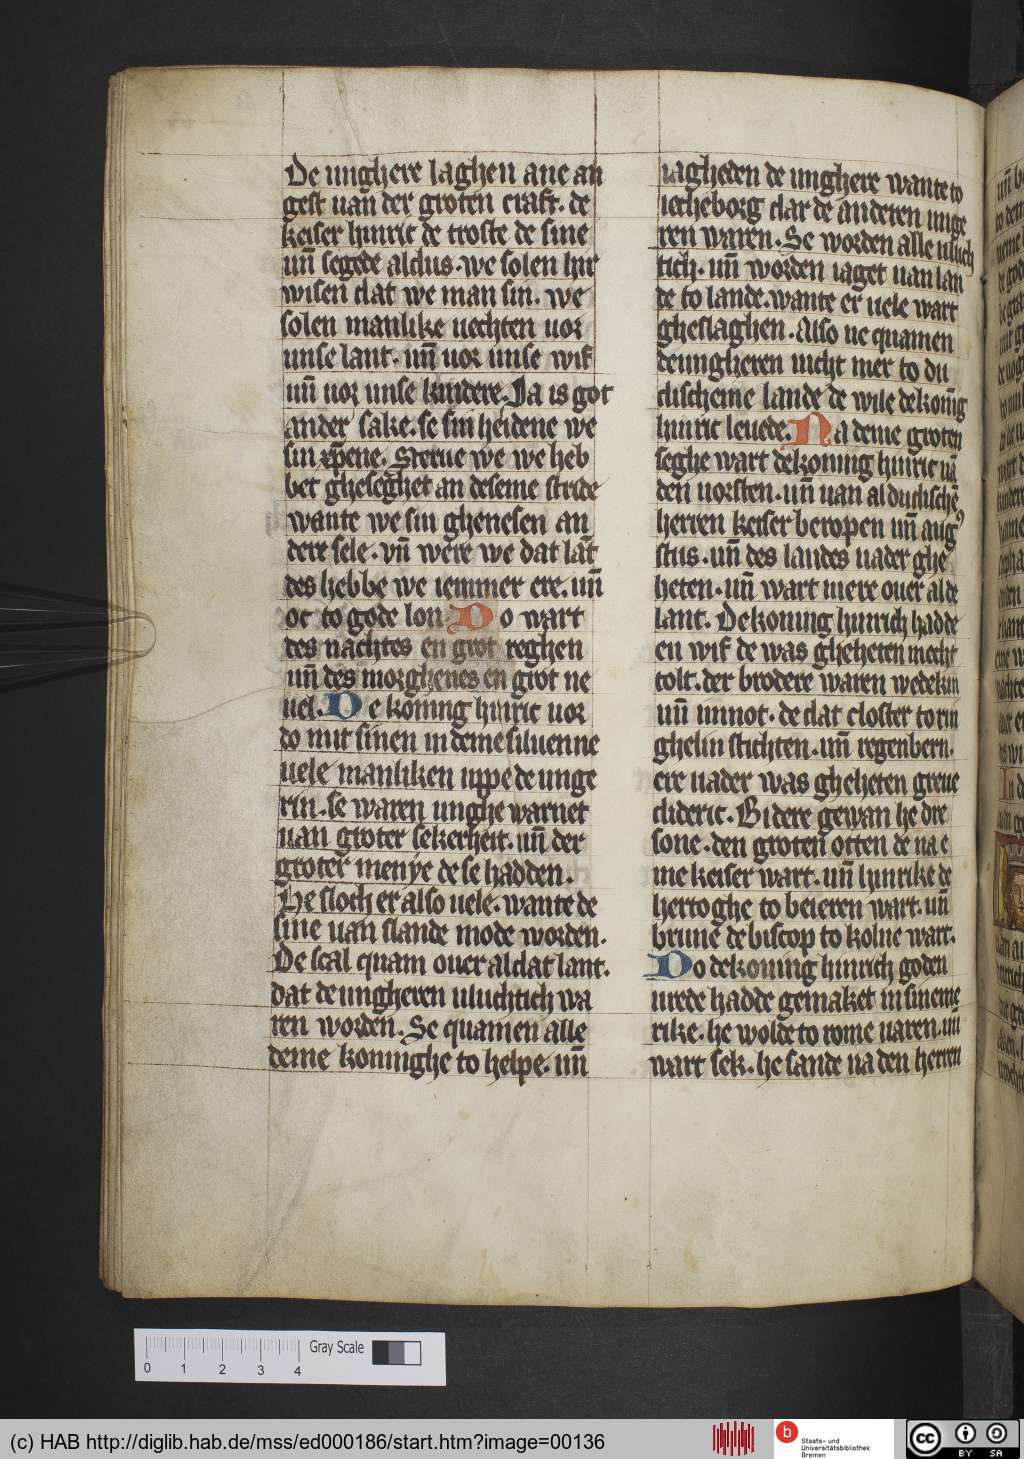 De unghere laghen ane an
gest uan der groten craft. de
keiser hinric de troste de sine
un̄ segede aldus. we solen hir
wisen dat we man sin. we
solen manlike uechten uor
unse lant. un̄ uor unse wif
un̄ uor unse kindere. Ja is got
ander sake. se sin heidene we
sin xp̄ene. Sterue we we heb
bet gheseghet an deseme stride
wante we sin ghenesen an
dere sele. vn̄ were we dat lāt
des hebbe we iemmer ere. un̄
oc to gode lon. Do wart
des nachtes en grot reghen
un̄ des morghenes en grot ne
uel. De koning hinric uor
do mit sinen in deme siluen ne
uele manliken uppe de unge
rin. se waren unghewarnet
uan groter sekerheit. un̄ der
groter menye de se hadden.
He sloch er also uele. wante de
sine uan slande mode worden.
De scal quam ouer al dat lant.
dat de ungheren uluchtich wa
ren worden. Se quamen alle
deme koninghe to helpe. un̄
iagheden de unghere wante to
iecheborg dar de anderen unge
ren waren. Se worden alle uluch
tich. un̄ worden iaget uan lan
de to lande. wante er uele wart
gheslaghen. Also ne quamen
de ungheren nicht mer to du
discheme lande de wile de konīg
hinric leuede. Na deme groten
seghe wart de koning hinric uā
den uorsten. un̄ uan al dudischē
herren keiser beropen un̄ aug9
stus. un̄ des landes uader ghe
heten. un̄ wart mere ouer al de
lant. De koning hinrich hadde
en wif de was gheheten mecht
tolt. der brodere waren wedekin
un̄ imnot. de dat closter to rin
ghelin stichten. un̄ regenbern.
ere uader was gheheten greue
dideric. Bi dere gewan he dre
sone. den groten otten de na e
me keiser wart. un̄ hinrike de
hertoghe to beieren wart. un̄
brune de biscop to kolne wart.
Do de koning hinrich goden
urede hadde gemaket in sineme
rike. he wolde to rome uaren. un̄
wart sek. he sande na den herren
0 1 2 3 4 Gray Scale
(c) HAB http://diglib.hab.de/mss/ed000186/start.htm?image=00136
b Staats- und Universitätsbibliothek Bremen
cc BY SA